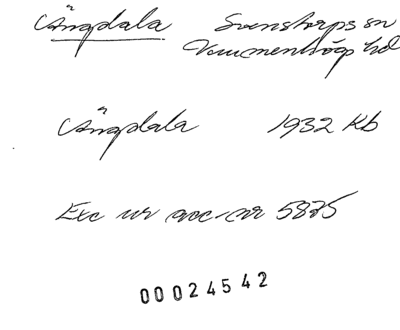 Ängdala Svenstorps sn
Vemmenhögs hd
Ängdala 1932 Kb
Exc ur acc-nr 5825
00024542